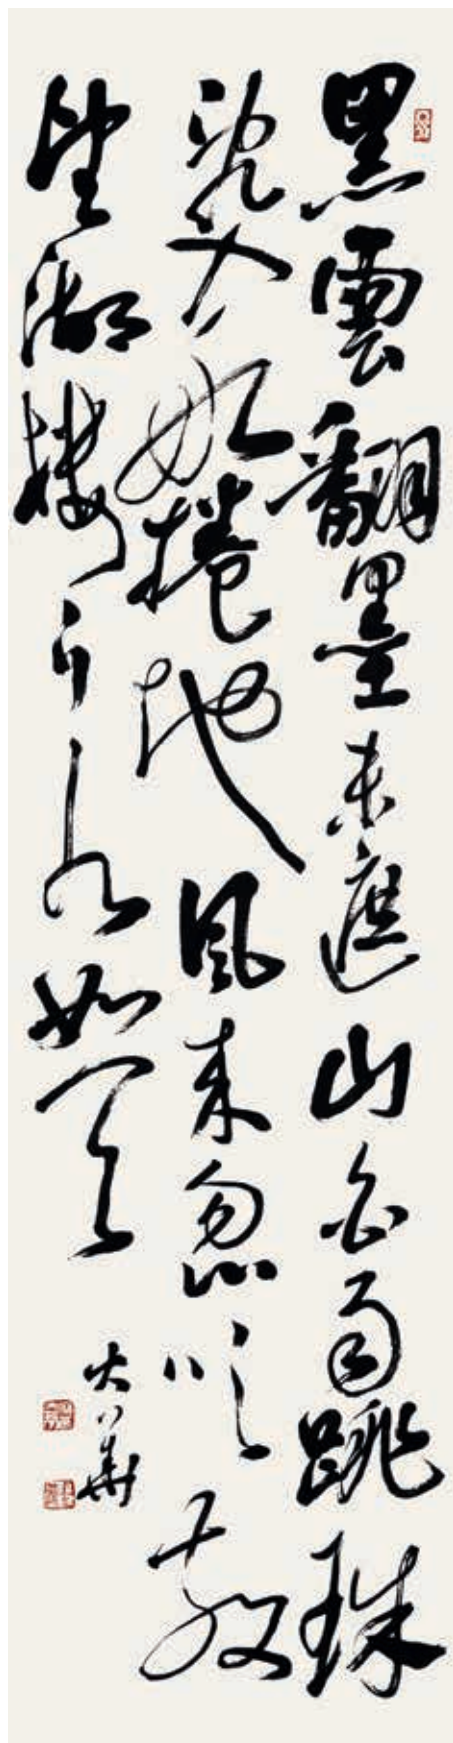 黑雲翻墨未遮山白雨跳珠
亂入船捲地風來忽吹散
望湖樓下水如天
大華